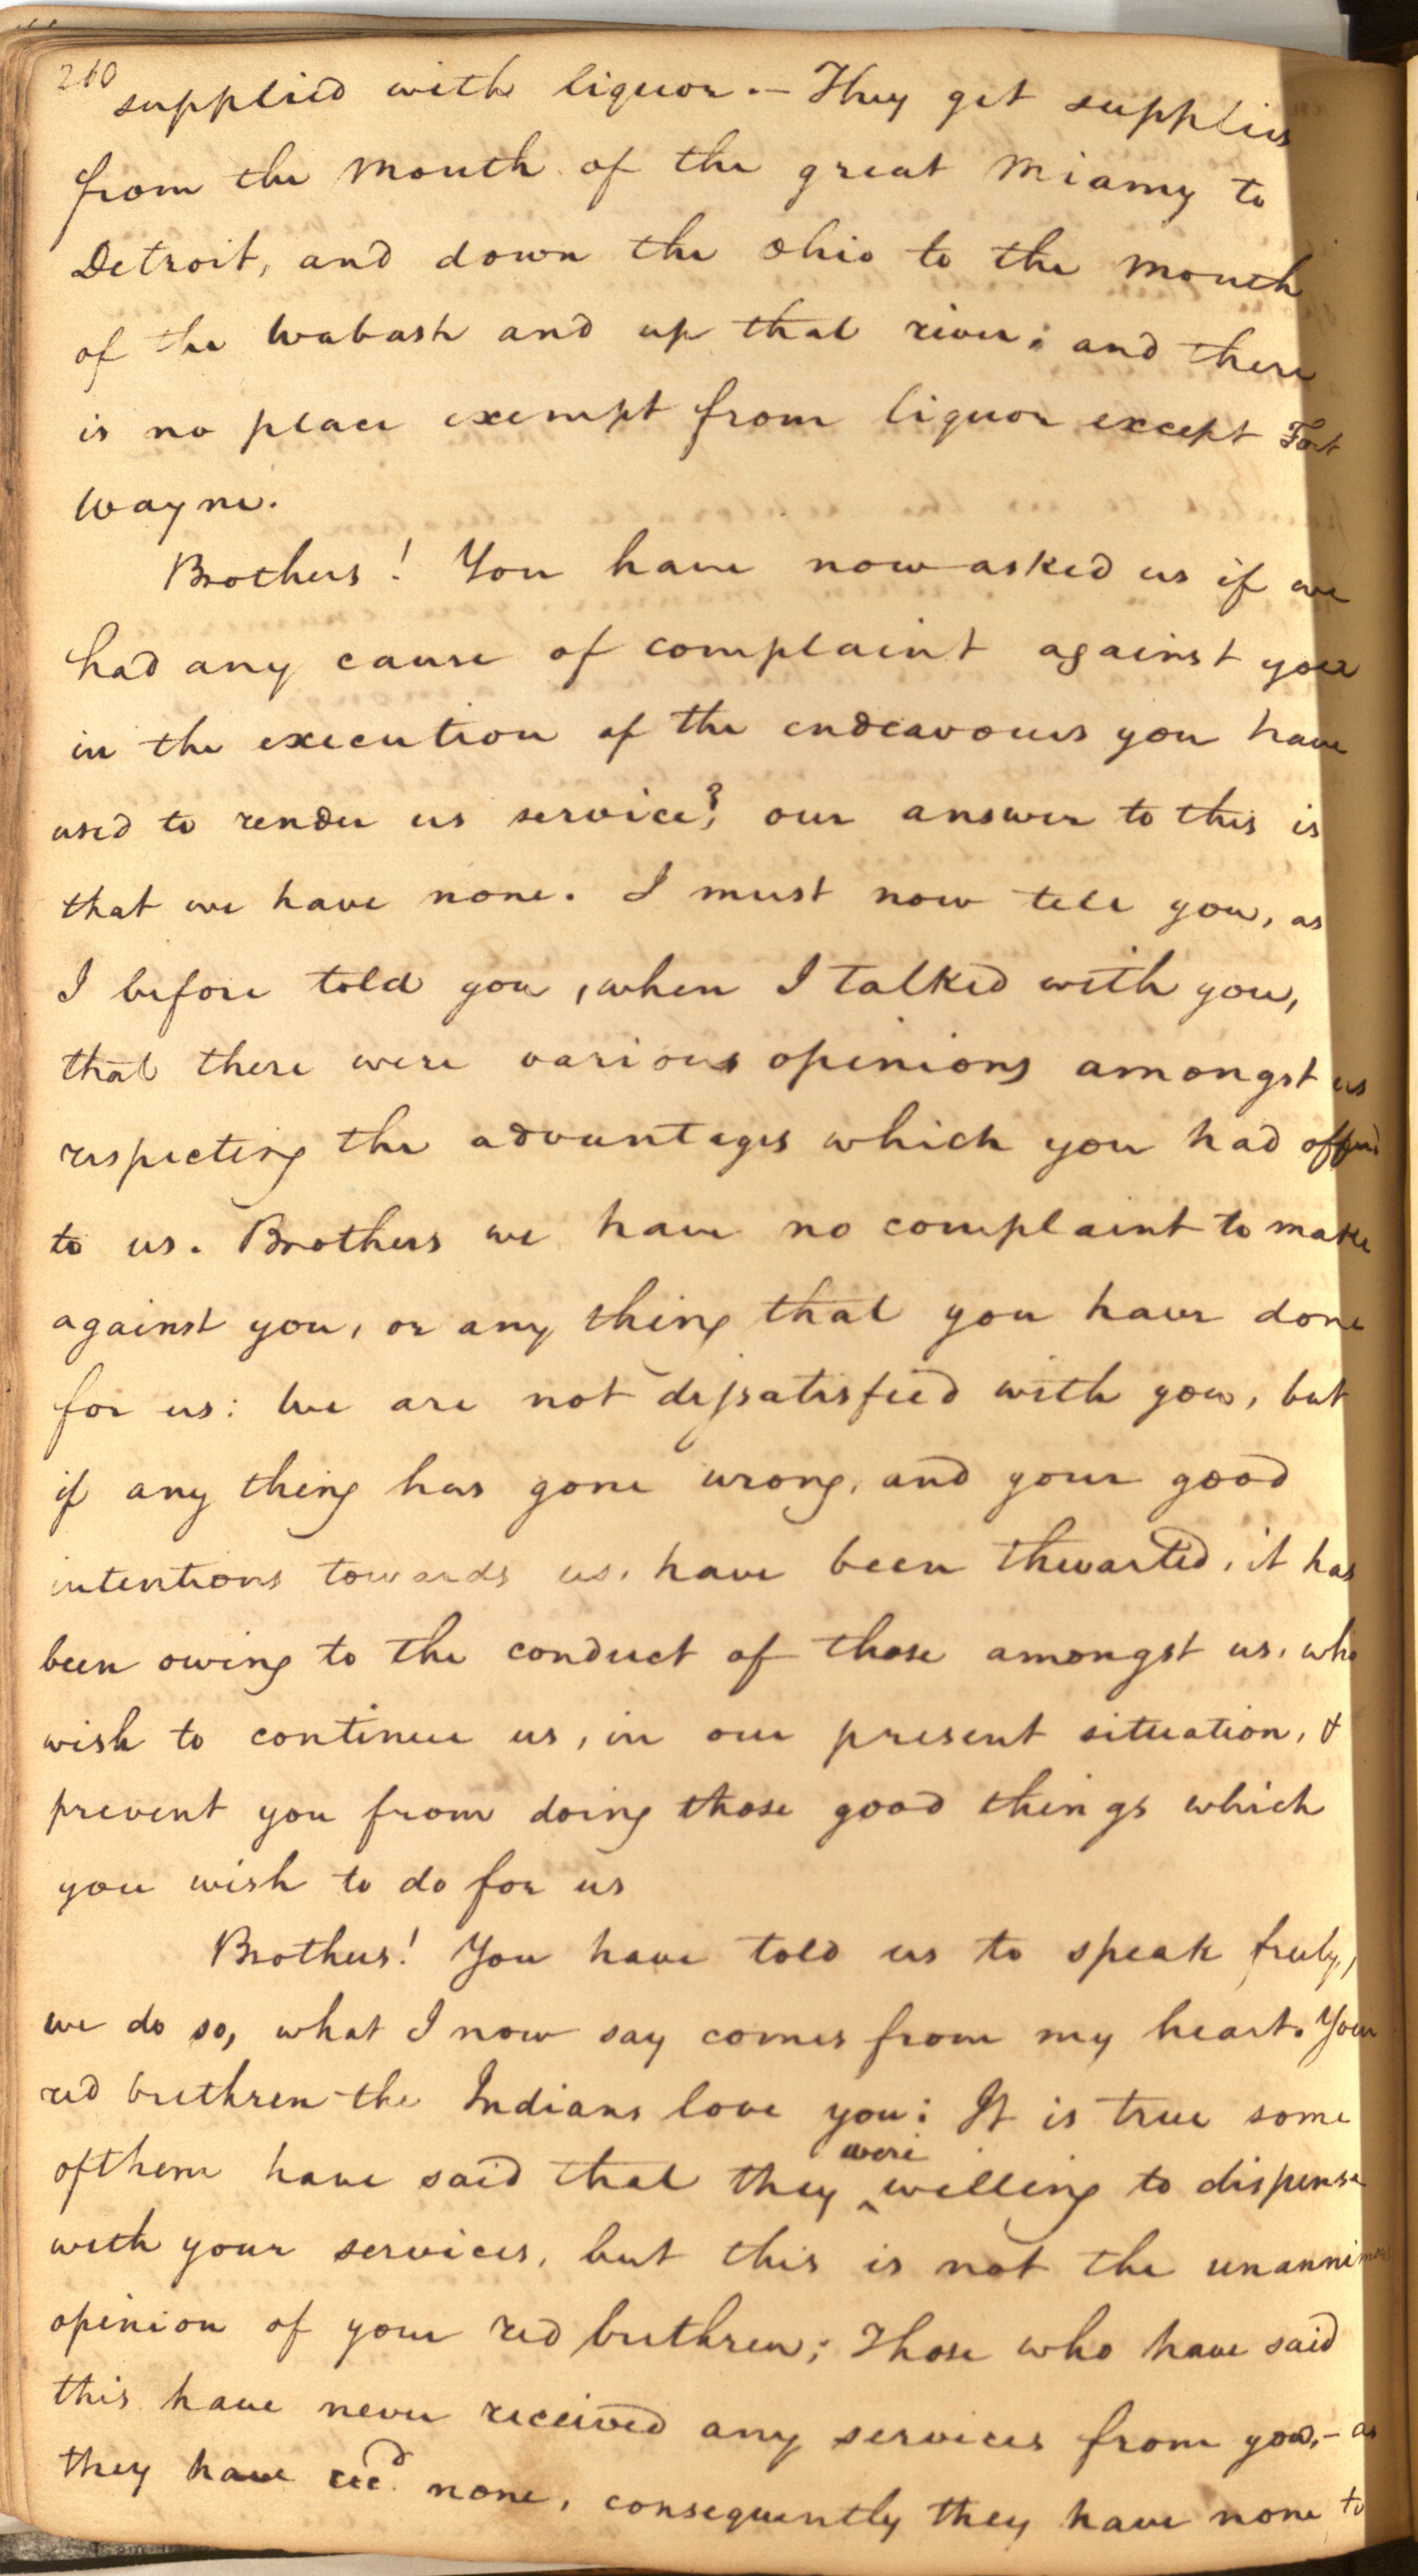 210
supplied with liquor. – They get supplies
from the mouth of the great Miamy to
Detroit, and down the Ohio to the mouth
of the Wabash and up that river; and there
is no place exempt from liquor except Fort
Wayne.
Brothers! You have now asked us if we
had any cause of complaint against you
in the execution of the endeavours you have
used to render us service?, our answer to this is
that we have none. I must now tell you, as
I before told you, when I talked with you,
that there were various opinions amongst us
respecting the advantages which you had offered
to us. Brothers we have no complaint to make
against you, or any thing that you have done
for us: We are not dissatisfied with you, but
if any thing has gone wrong, and your good
intentions towards us, have been thwarted, it has
been owing to the conduct of those amongst us, who
wish to continue us, in our present situation, &
prevent you from doing those good things which
you wish to do for us
Brothers! You have told us to speak truly,
we do so, what I now say comes from my heart. Your
red brethren the Indians love you: It is true some
of them have said that they were willing to dispense
with your services, but this is not the unannimous
opinion of your red brethren; Those who have said
this have never received any services from you, – as
they have recd. none, consequently they have none to